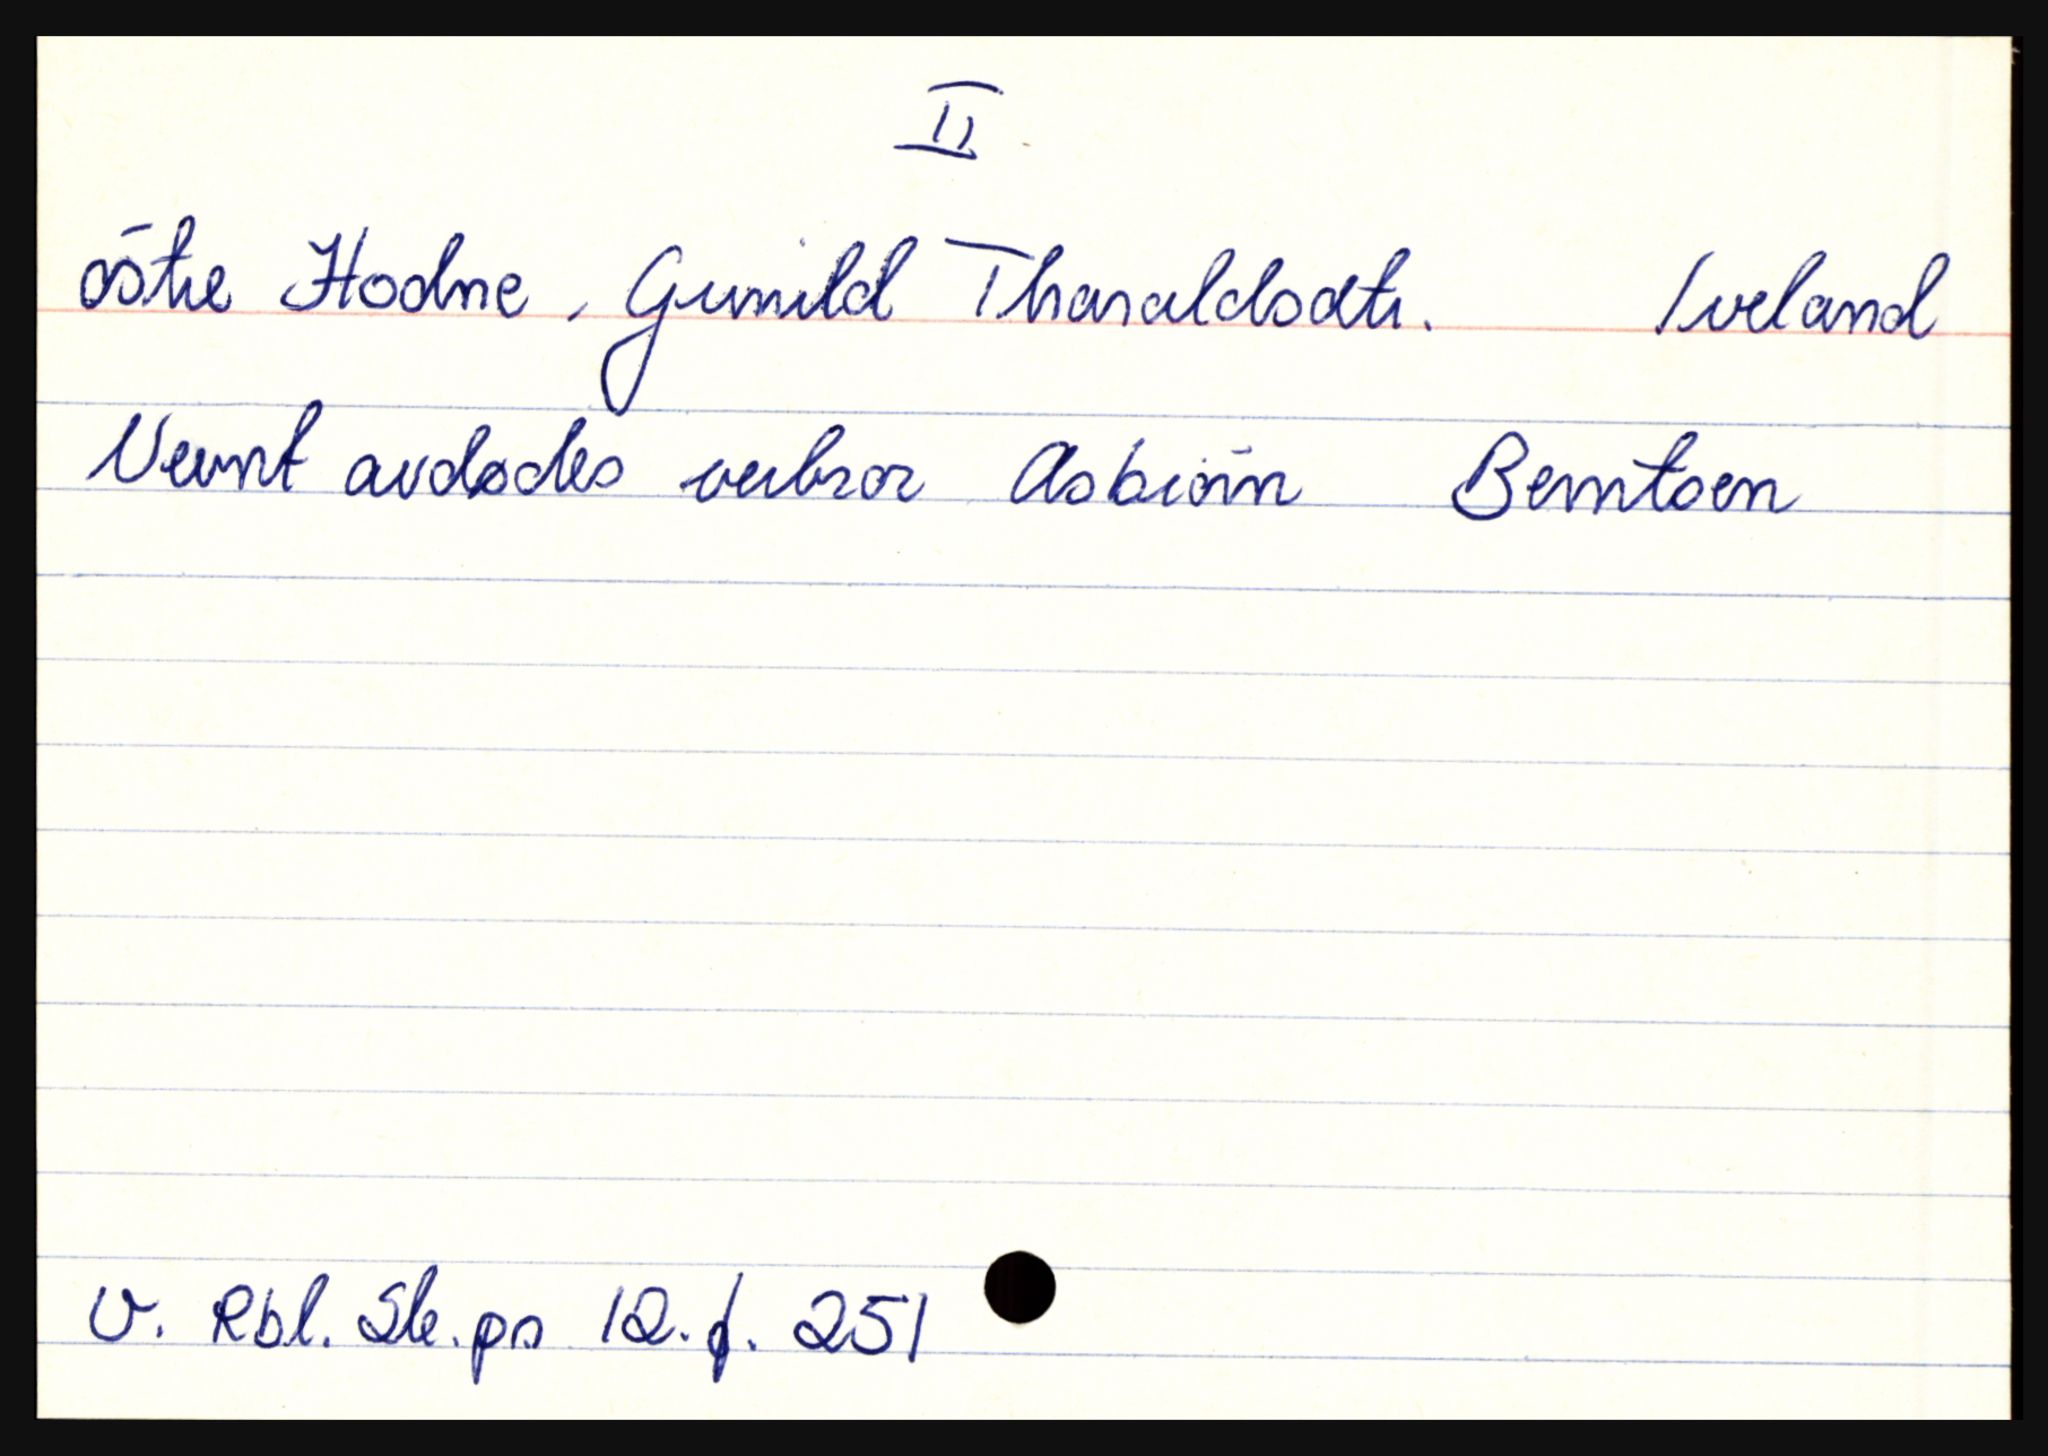 II
östre Hodne, Gunild Tharaldsdtr. Iveland
Nevnt avdødes verbror Asbiörn Berntsen
V. Rbl. Sk.pr 12.f. 251